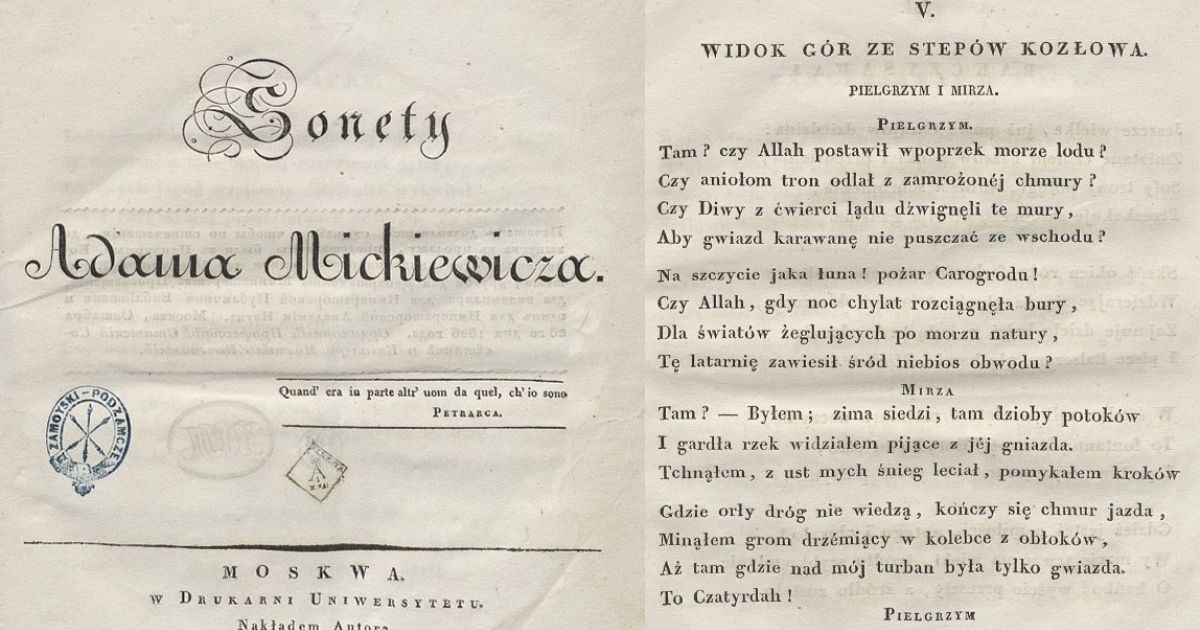 Sonety
Adama Mickiewicza.
Quand' era in parte altr' uom da quel, ch' io sono
PETRARCA.
ZAMOYSKI-PODZAMCZE
MOSKWA.
W DRUKARNI UNIWERSYTETU.
Nakładem Autora
V.
WIDOK GÓR ZE STEPÓW KOZŁOWA.
PIELGRZYM I MIRZA.
PIELGRZYM.
Tam? czy Allah postawił wpoprzek morze lodu?
Czy aniołom tron odlał z zamrożonéj chmury?
Czy Diwy z ćwierci lądu dźwignęli te mury,
Aby gwiazd karawanę nie puszczać ze wschodu?
Na szczycie jaka łuna! pożar Carogrodu!
Czy Allah, gdy noc chylat rozciągnęła bury,
Dla światów żeglujących po morzu natury,
Tę latarnię zawiesił śród niebios obwodu?
MIRZA
Tam? — Byłem; zima siedzi, tam dzioby potoków
I gardła rzek widziałem pijące z jéj gniazda.
Tchnąłem, z ust mych śnieg leciał, pomykałem kroków
Gdzie orły dróg nie wiedzą, kończy się chmur jazda,
Minąłem grom drzémiący w kolebce z obłoków,
Aż tam gdzie nad mój turban była tylko gwiazda.
To Czatyrdah!
PIELGRZYM